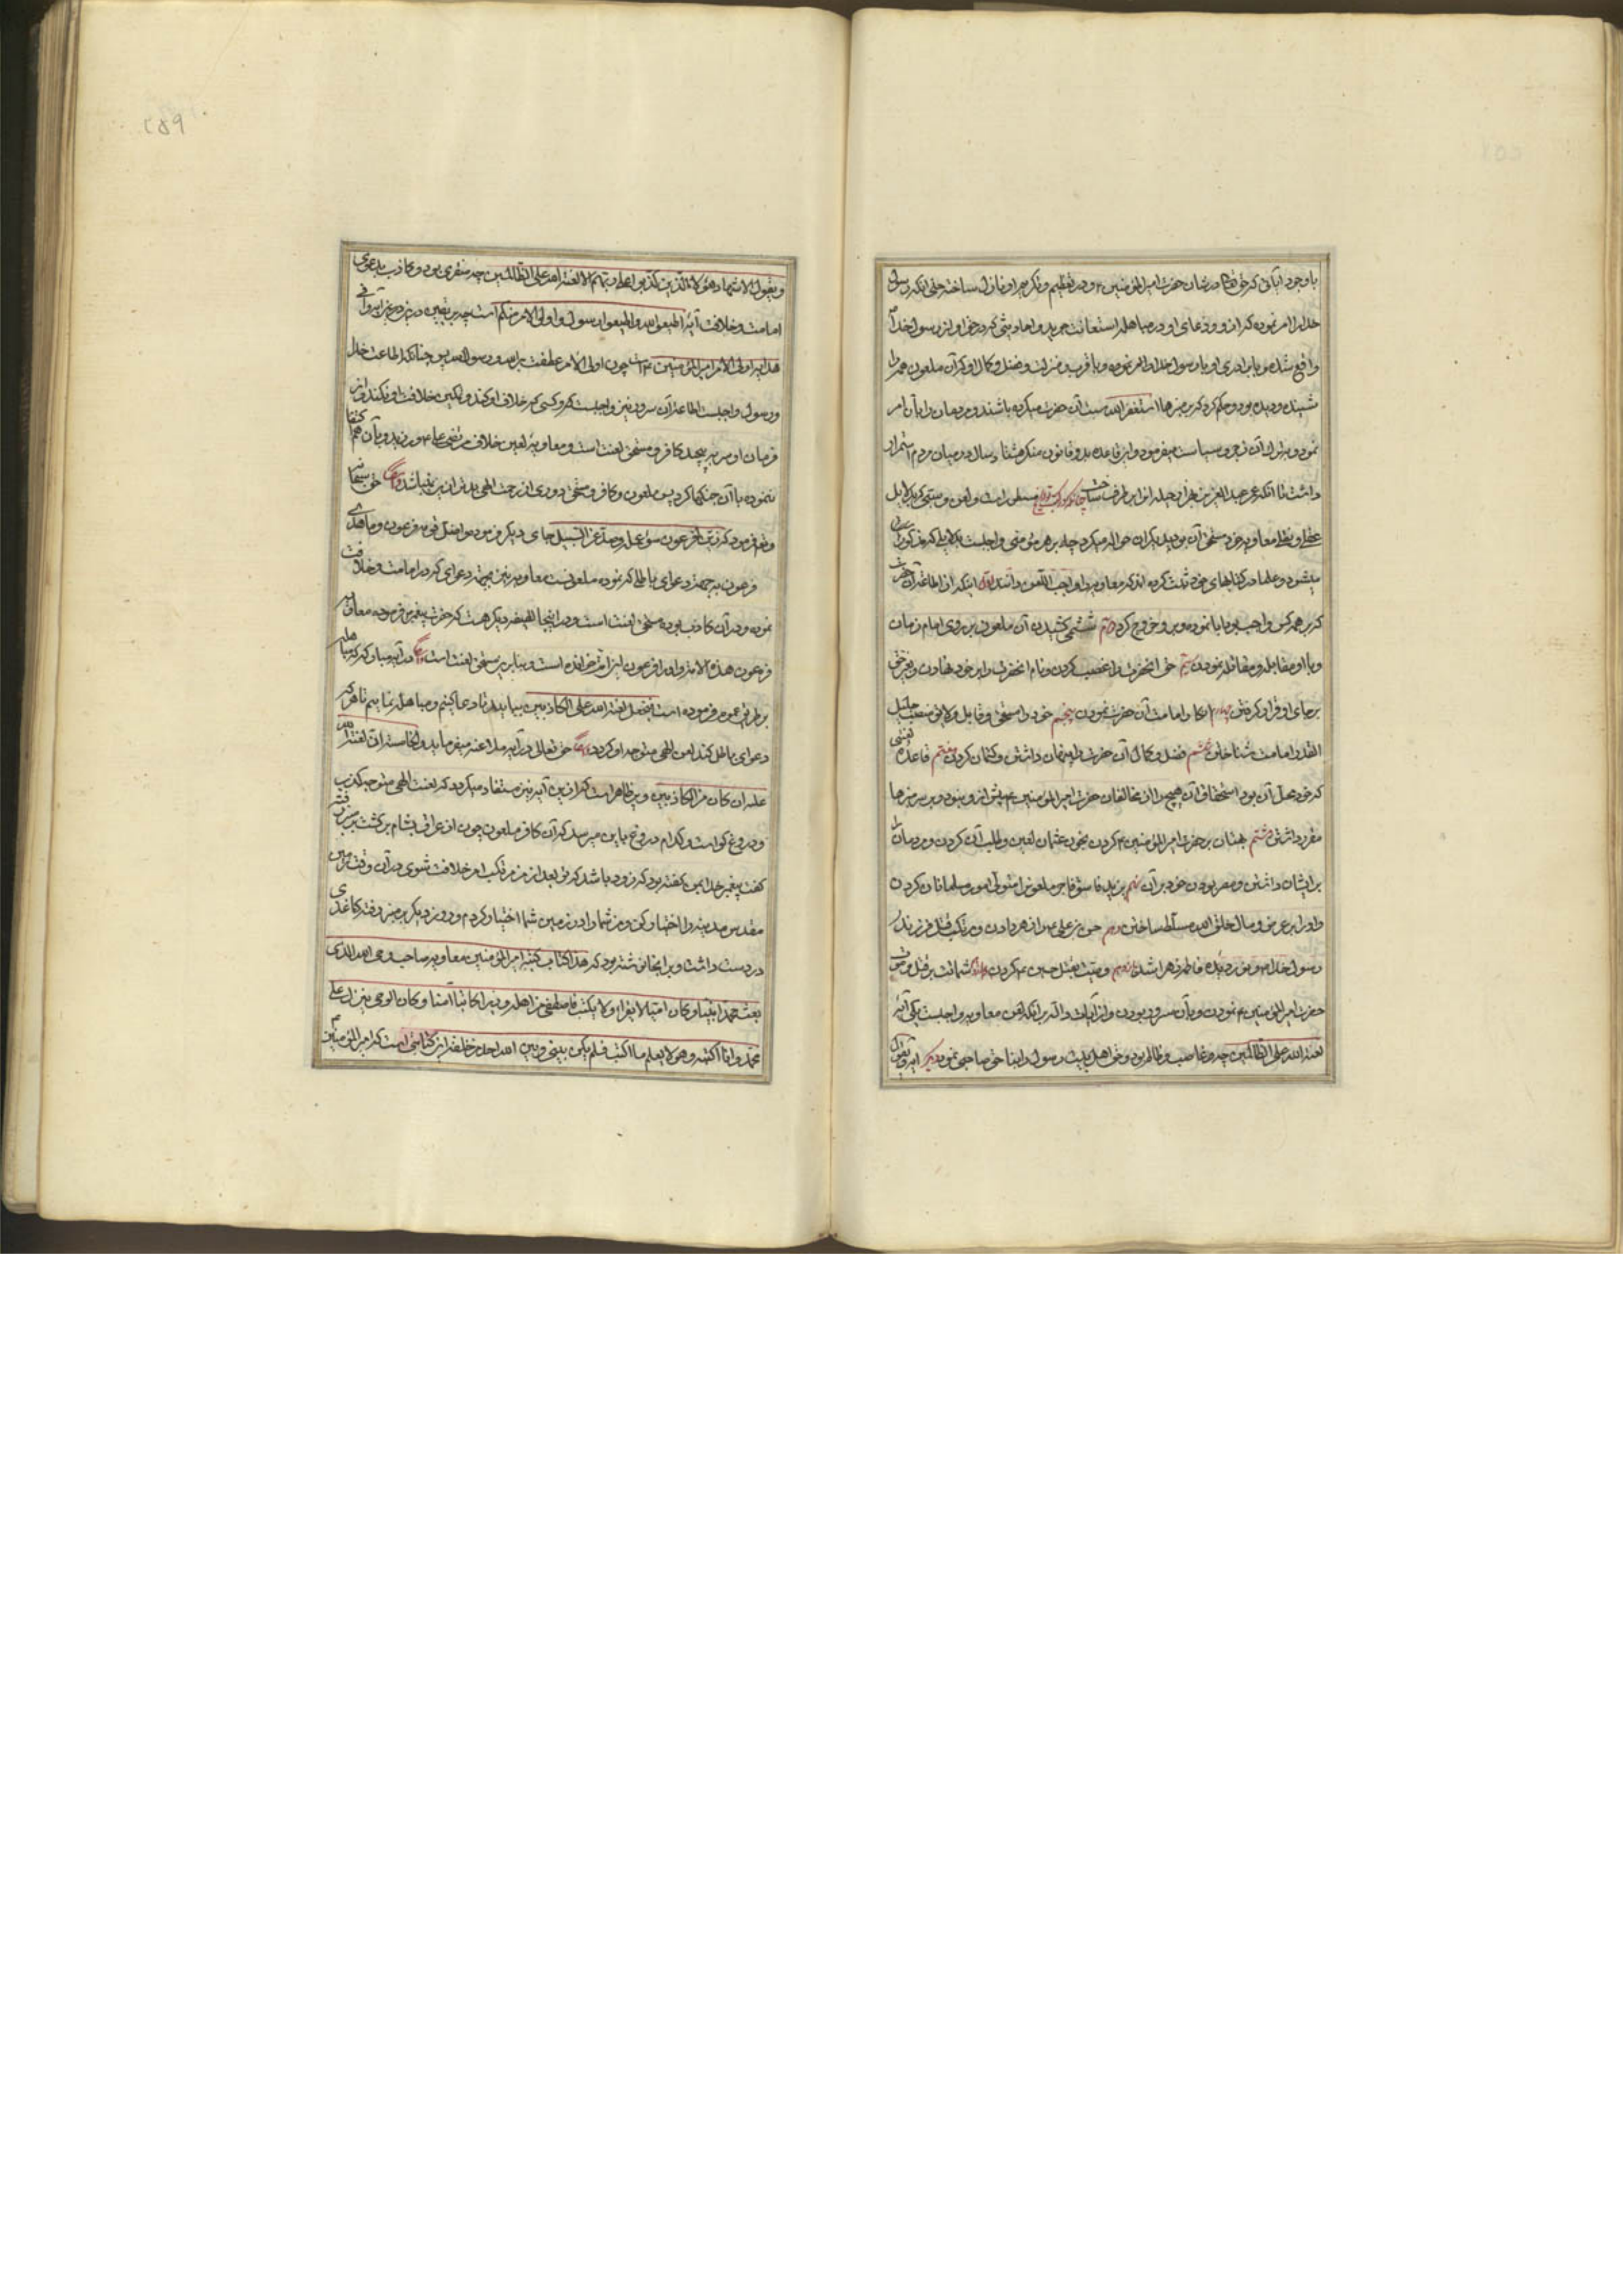 باوجود آیاتی که حق تعالی در شان حضرت امیرالمؤمنین ۴ و در تعظیم و تکریم او نازل ساخته حتی آنکه رسول
خدا را امر نموده که از و و دعای او در مباهله استعانت جوید و احادیثی که در حق او از رسول خدا
واقع شده و با برادری او با رسول خدا و امر نموده و با قرب و منزلت و فضل و کمال او که آن ملعون همه را
شنیده و دیده بود و حکم کرد که بر منبرها استغفرالله سب آن حضرت میکرده باشند و مردمان را بآن امر
نمود و بترک آن زجر و سیاست میفرمود و این قاعده بد و قانون منکر هشتاد سال در میان مردم استمرار
داشت تا آنکه عمر عبدالعزیز بهزار حیله آنرا برطرف ساخت چنانکه در کتب تواریخ مسطور است و لعن و سبی که بدلایل
عقلی و نقلی معاویه خود مستحق آن بود بدیگران حواله میکرد چه بر هر مؤمنی واجبست بدلایلی که مذکور
میشود و علما در کتابهای خود ثبت کرده اند که معاویه را واجب اللعن دانند اول اینکه از اطاعت آن حضرت
که بر همه کس واجب بود ابا نموده و برو خروج کرد دوم شمشیر کشیدن آن ملعون بر روی امام زمان
و با او مقابله و مقاتله نمودن سیم حق آنحضرت را غصب کردن و نام آنحضرت را بر خود نهادن و بغیر حق
بر جای او قرار گرفتن چهارم انکار امامت آن حضرت نمودن پنجم خود را مستحق و قابل و لایق منصب جلیل
القدر امامت شناختن ششم فضل و کمال آن حضرت را پنهان داشتن و کتمان کردن هفتم قاعده لعنتی
که خود محل آن بود و استحقاق آن هیچیرا از مخالفان حضرت امیرالمؤمنین ۴ بیش از و نبود و بر سر منبرها
مقرر داشتن هشتم بهتان بر حضرت امیرالمؤمنین ۴ کردن بخون عثمان لعین و طلب آن کردن و مردمان را
بر ایشان داشتن و مصر بودن خود بر آن نهم یزید فاسق فاجر ملعون را متولی امور مسلمانان کردن
و او را بر عرض و مال خلق الله مسلط ساختن دهم حسن بن علی ۴ را زهر دادن و مرتکب قتل فرزند
رسول خدا ۴ و نور دیده فاطمه زهرا شدن یازدهم وصیت بقتل حسین ۴ کردن دوازدهم شماتت بر قتل و موت
حضرت امیرالمؤمنین ۴ نمودن و بآن مسرور بودن و از آیات داله بر آنکه لعن معاویه واجبست یکی آیه
لعنة الله علی الظالمین چه او غاصب و ظالم بود و حق اهل بیت رسول را بناحق صاحبی نمود دیگر آیه و یقول
و یقول الاشهاد هؤلاء الذین کذبوا علی ربهم الا لعنة الله علی الظالمین چه مفتری بود و کاذب بدعوی
امامت و خلافت آیه اطیعوا الله و اطیعوا الرسول و اولی الامر منکم است چه بر یقین در
هذا به اولی الامر امیرالمؤمنین ۴ است چون اولی الامر عطفست بر الله و رسول الله پس چنانکه اطاعت خدا
و رسول واجبست اطاعة آن سرور نیز واجبست هر کسی که خلاف او کند و لکین خلافت او نکند و از
فرمان او سر به پیچد کافر و مستحق لعنت است و معاویه لعین خلاف مرتضی علی ۴ ورزید و بآن هم اکتفا
ننموده با آن جنگها کرد پس ملعون و کافر و مستحق دوری از رحمت الهی بدتر از این نمیباشد دیگر حق سبحانه
و تعالی فرمود که زین لفرعون سوء عمله و صد عن السبیل جای دیگر فرموده و اضل فرعون قومه و ما هدی
فرعون بجهت دعوای باطلی که نموده ملعونست معاویه نیز بجهت دعوای که در امامت و خلافت
نموده و در آن کاذب بوده مستحق لعنت است و در اینجا لطیفه دیگر هست که حضرت پیغمبر فرموده معاویه
فرعون هذه الامة و او را فرعون این امت خوانده است و بنابرین مستحق لعنت است دیگر در آیه مباهله که
فرموده است فنجعل لعنة الله علی الکاذبین بیایید تا دعا کنیم و مباهله نماییم تا هر که
دعوای باطل کند لعن الهی متوجه او گردد دیگر حق تعالی در آیه ملاعنه میفرماید والخامسة ان لعنة الله
علیه ان کان من الکاذبین و پر ظاهر است که ازین آیه نیز مستفاد میگردد که لعنت الهی متوجه کذب
و دروغ گو است و کدام دروغ باین میرسد که آن کافر ملعون چون از عراق بشام برگشت بر منبر رفته
گفت پیغمبر خدا بمن گفته بود که زود باشد که تو بعد از من مرتکب امر خلافت شوی در آن وقت زمین
مقدس مدینه را اختیار کن و من شما را و زمین شما اختیار کردم و روز دیگر بر منبر رفته کاغذی
در دست داشت و بر آنجا نوشته بود که هذا کتاب کتبه امیرالمؤمنین معاویه صاحب وحی الله الذی
بعث محمدا نبیا و کان امیا لا یقرا و لا یکتب فاصطفی من اهله وزیرا کاتبا امینا و کان الوحی ینزل علی
محمد و انا اکتبه و هو لا یعلم ما اکتب فلم یکن بینی و بین الله احد من خلقه این کتابتی است که امیرالمؤمنین